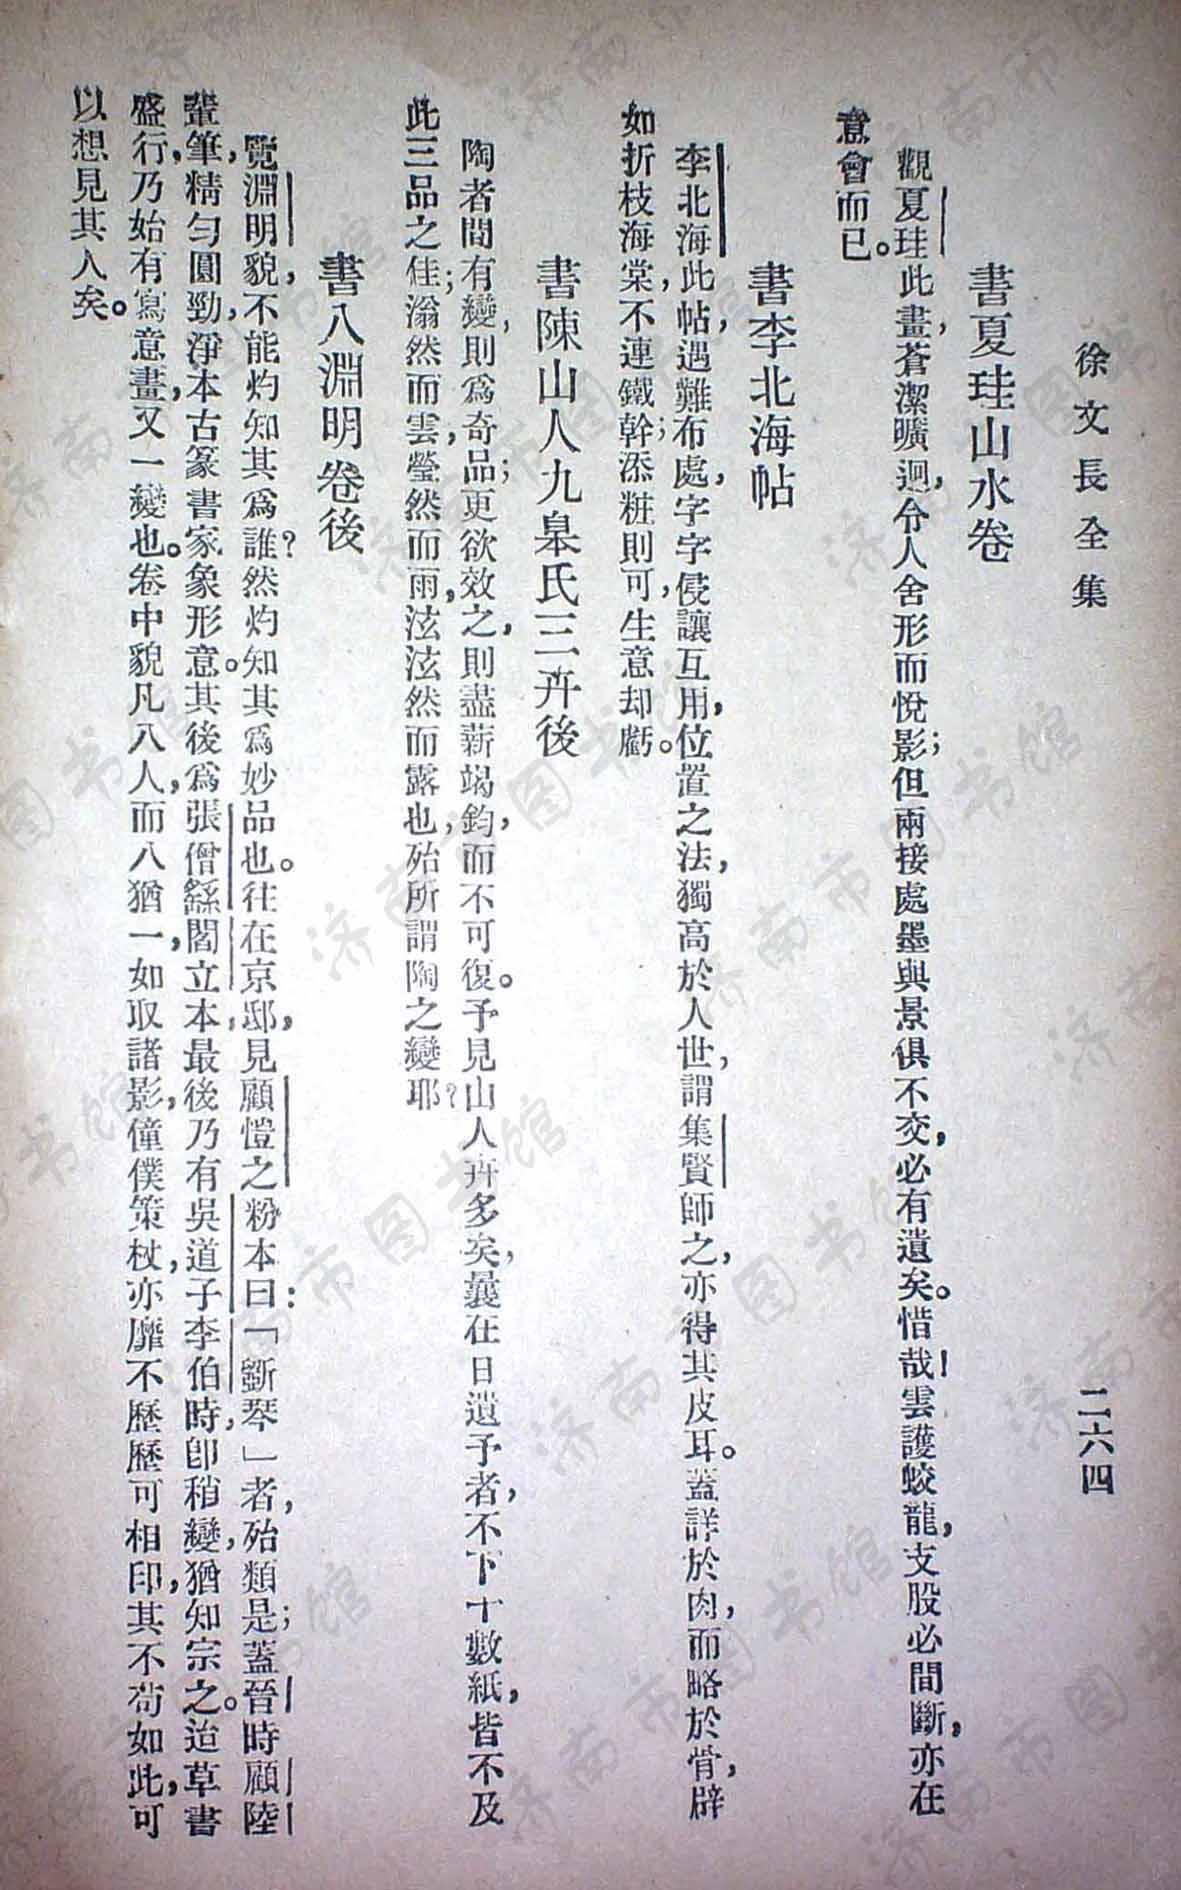 徐文長全集
二六四
書夏珪山水卷
觀夏珪此畫，蒼潔曠迥，令人舍形而悅影；但兩接處墨與景俱不交，必有遺矣。惜哉！雲護蛟龍，支股必間斷，亦在
意會而已。
書李北海帖
李北海此帖，遇難布處，字字侵讓互用，位置之法，獨高於人世，謂集賢師之，亦得其皮耳。蓋詳於肉，而略於骨，辟
如折枝海棠，不連鐵幹；添粧則可，生意却虧。
書陳山人九皋氏三卉後
陶者間有變，則爲奇品；更欲效之，則盡薪竭鈞，而不可復。予見山人卉多矣，曩在日遺予者，不下十數紙，皆不及
此三品之佳；滃然而雲，瑩然而雨，泫泫然而露也，殆所謂陶之變耶？
書八淵明卷後
覽淵明貌，不能灼知其爲誰？然灼知其爲妙品也。往在京邸，見顧愷之粉本曰：「斲琴」者，殆類是；蓋晉時顧陸
輩筆，精勻圓勁，淨本古篆書家象形意。其後爲張僧繇閻立本，最後乃有吳道子李伯時，卽稍變，猶知宗之。迨草書
盛行，乃始有寫意畫，又一變也。卷中貌凡八人，而八猶一，如取諸影，僮僕策杖，亦靡不歷歷可相印，其不茍如此，可
以想見其人矣。
济南市图书馆